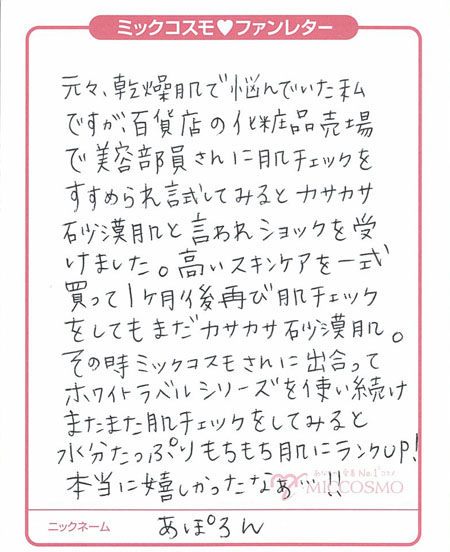 ミックコスモ♥ファンレター
元々、乾燥肌で悩んでいた私
ですが、百貨店の化粧品売場
で美容部員さんに肌チェックを
すすめられ試してみるとカサカサ
砂漠肌と言われショックを受
けました。高いスキンケアを一式
買って1ヶ月後再び肌チェック
をしてもまだカサカサ砂漠肌。
その時ミックコスモさんに出合って
ホワイトラベルシリーズを使い続け
またまた肌チェックをしてみると
水分たっぷりもちもち肌にランクUP!
本当に嬉しかったなぁ…!!
MICCOSMO
ニックネーム あぽろん